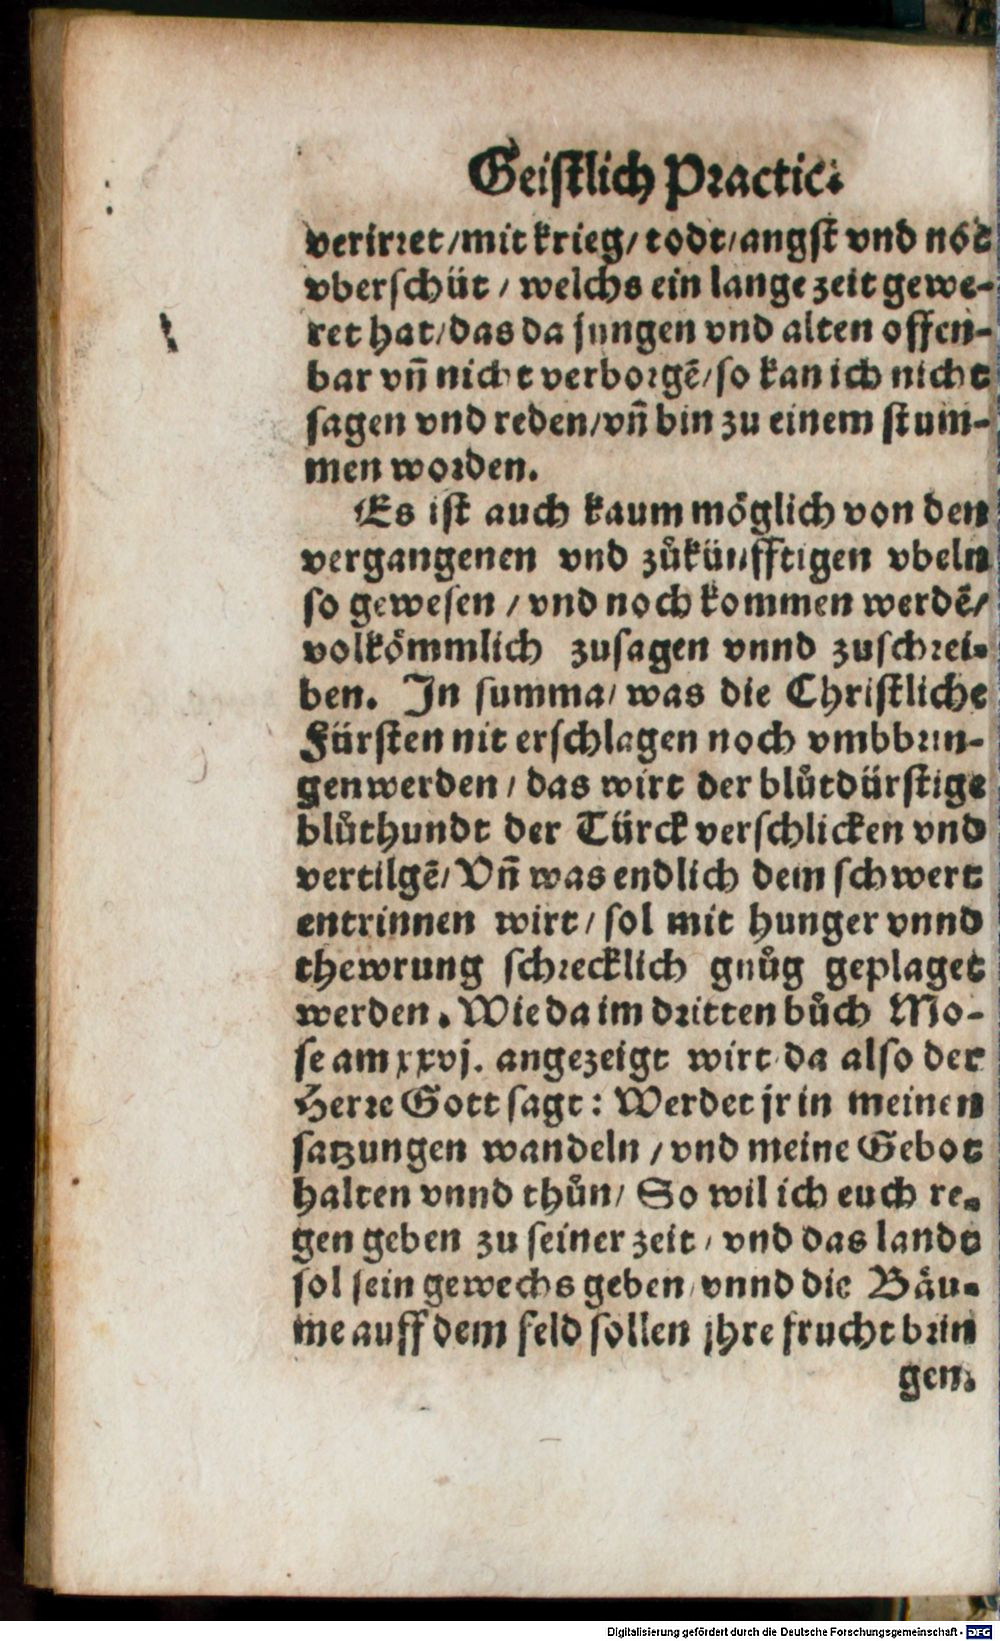 Geistlich Practic.
verirret/mit krieg/ todt/angst vnd nôt
vberschüt / welchs ein lange zeit gewe-
ret hat/das da jungen vnd alten offen-
bar vn̄ nicht verborgē/so kan ich nicht
sagen vnd reden/vn̄ bin zu einem stum-
men worden.
Es ist auch kaum möglich von den
vergangenen vnd zůkünfftigen vbeln
so gewesen / vnd noch kommen werdē/
volkömmlich zusagen vnnd zuschrei-
ben. In summa/ was die Christliche
Fürsten nit erschlagen noch vmbbrin-
gen werden / das wirt der blůtdürstige
blůthundt der Türck verschlicken vnd
vertilgē/ Vn̄ was endlich dem schwert
entrinnen wirt/ sol mit hunger vnnd
thewrung schrecklich gnůg geplaget
werden. Wie da im dritten bůch Mo-
se am xxvj. angezeigt wirt da also der
Herre Gott sagt: Werdet jr in meinen
satzungen wandeln / vnd meine Gebot
halten vnnd thůn/ So wil ich euch re-
gen geben zu seiner zeit / vnd das landt
sol sein gewechs geben/vnnd die Bäu-
me auff dem feld sollen jhre frucht brin
gen.
Digitalisierung gefördert durch die Deutsche Forschungsgemeinschaft - DFG